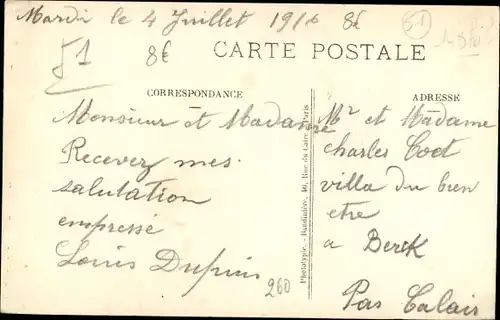 Mardi le 4 Juillet 1916 8€
51
51
8€
CARTE POSTALE
CORRESPONDANCE
ADRESSE
Monsieur et Madame
Recevez mes
salutation
empressé
Louis Dupuis
260
Phototypie. - Baudinière, 40, Rue du Caire, Paris
Mr et Madame
Charles Coet
villa du bien
etre
a Berck
Pas Calais